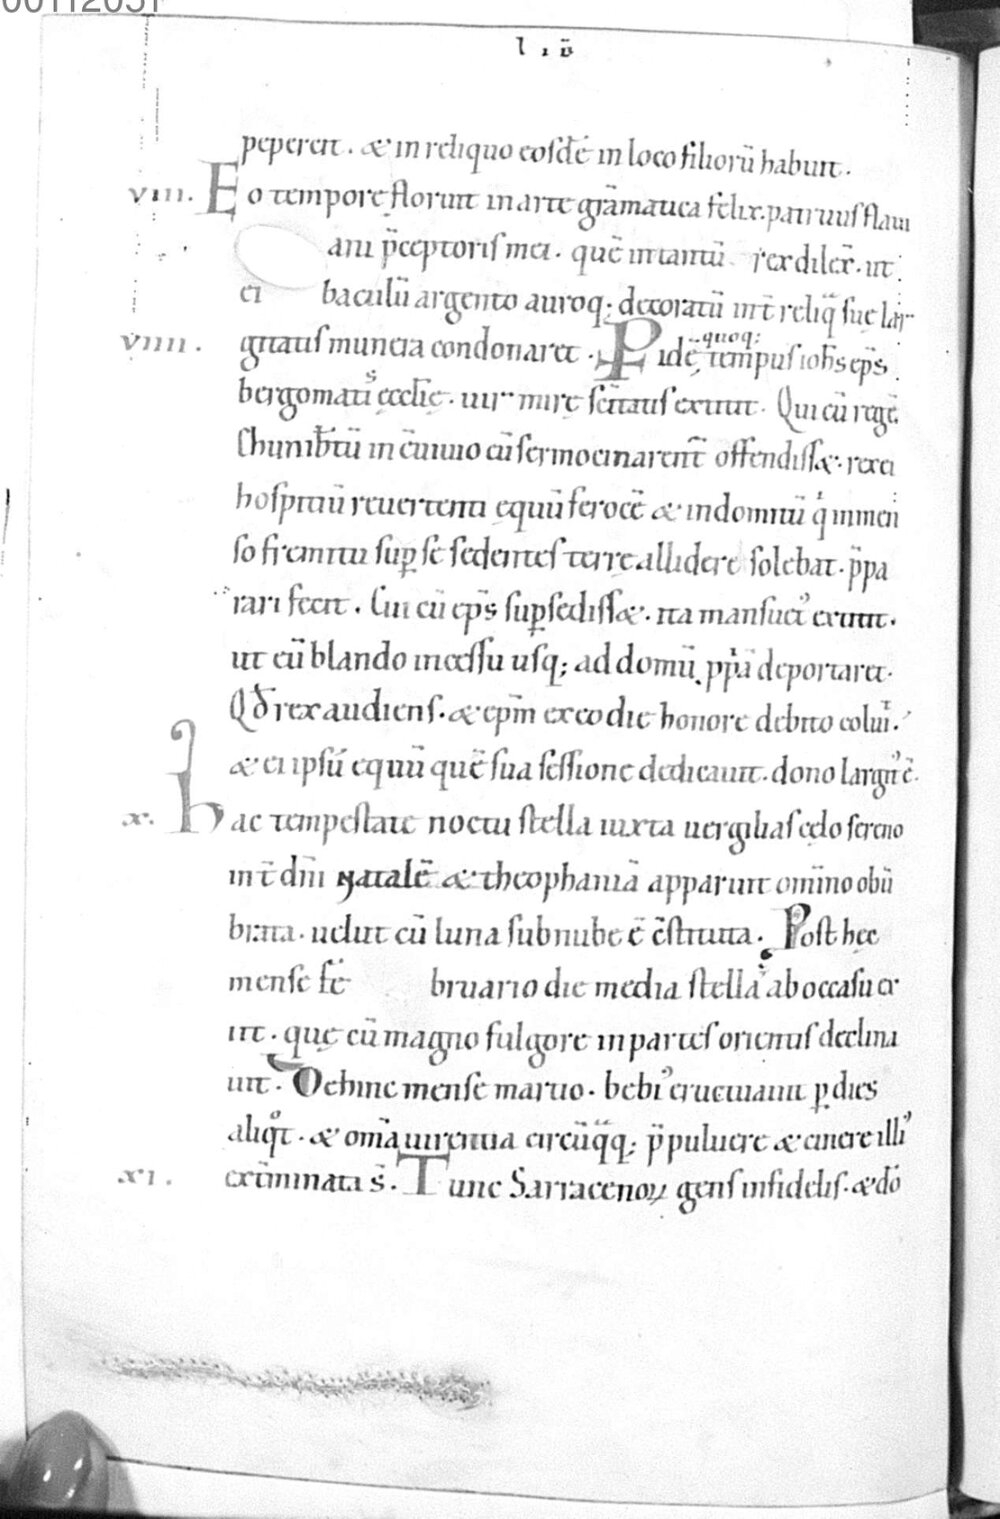 l i b̄
pepercit . & in reliquo eosdē in loco filiorū habuit .
viii. Eo tempore floruit in arte grāmatica felix . patruus flaui
ani p̄ceptoris mei . quē intantū rex dilex̄ . ut
ei baculū argento auroq; decoratū int̄ reliq̄ suę lar
viiii . gitatis munera condonaret . Pidē quoq; tempus ioħs ep̄s
bergomatis ęcclię . uir mirę sc̄itatis extitit . Qui cū regē
Chunib̄tū in c̄uiuio cū sermocinarent̄ offendiss& . rex ei
hospitiū reuertenti equū ferocē & indomitū q̇ inmen
so fremitu sup̱ se sedentes terrę allidere solebat . p̄pa
rari fecit . Cui cū ep̄s sup̱sediss& . ita mansuet᾽ extitit .
ut eū blando incessu usq; ad domū ꝓpriā deportaret .
Qđ rex audiens . & ep̄m ex eo die honore debito coluit .
& ei ipsū equū quē sua sessione dedicauit . dono largit᾽ ē .
x . hac tempestate noctu stella iuxta uergilias cęlo sereno
int̄ dn̄i natalē & theophaniā apparuit om̄ino obū
brata . uelut cū luna sub nube ē c̄stituta . Post hęc
mense fe bruario die media stella ab occasu ex
iit . quę cū magno fulgore in partes orientis declina
uit . Dehinc mense martio . bebi᾽ eructuauit p̱ dies
aliqͦt . & om̄a uirentia circūq̄q; p̄ puluere & cinere illi᾽
xi . ext̄minata s̄ . Tunc Sarracenoꝝ gens infidelis . & dō